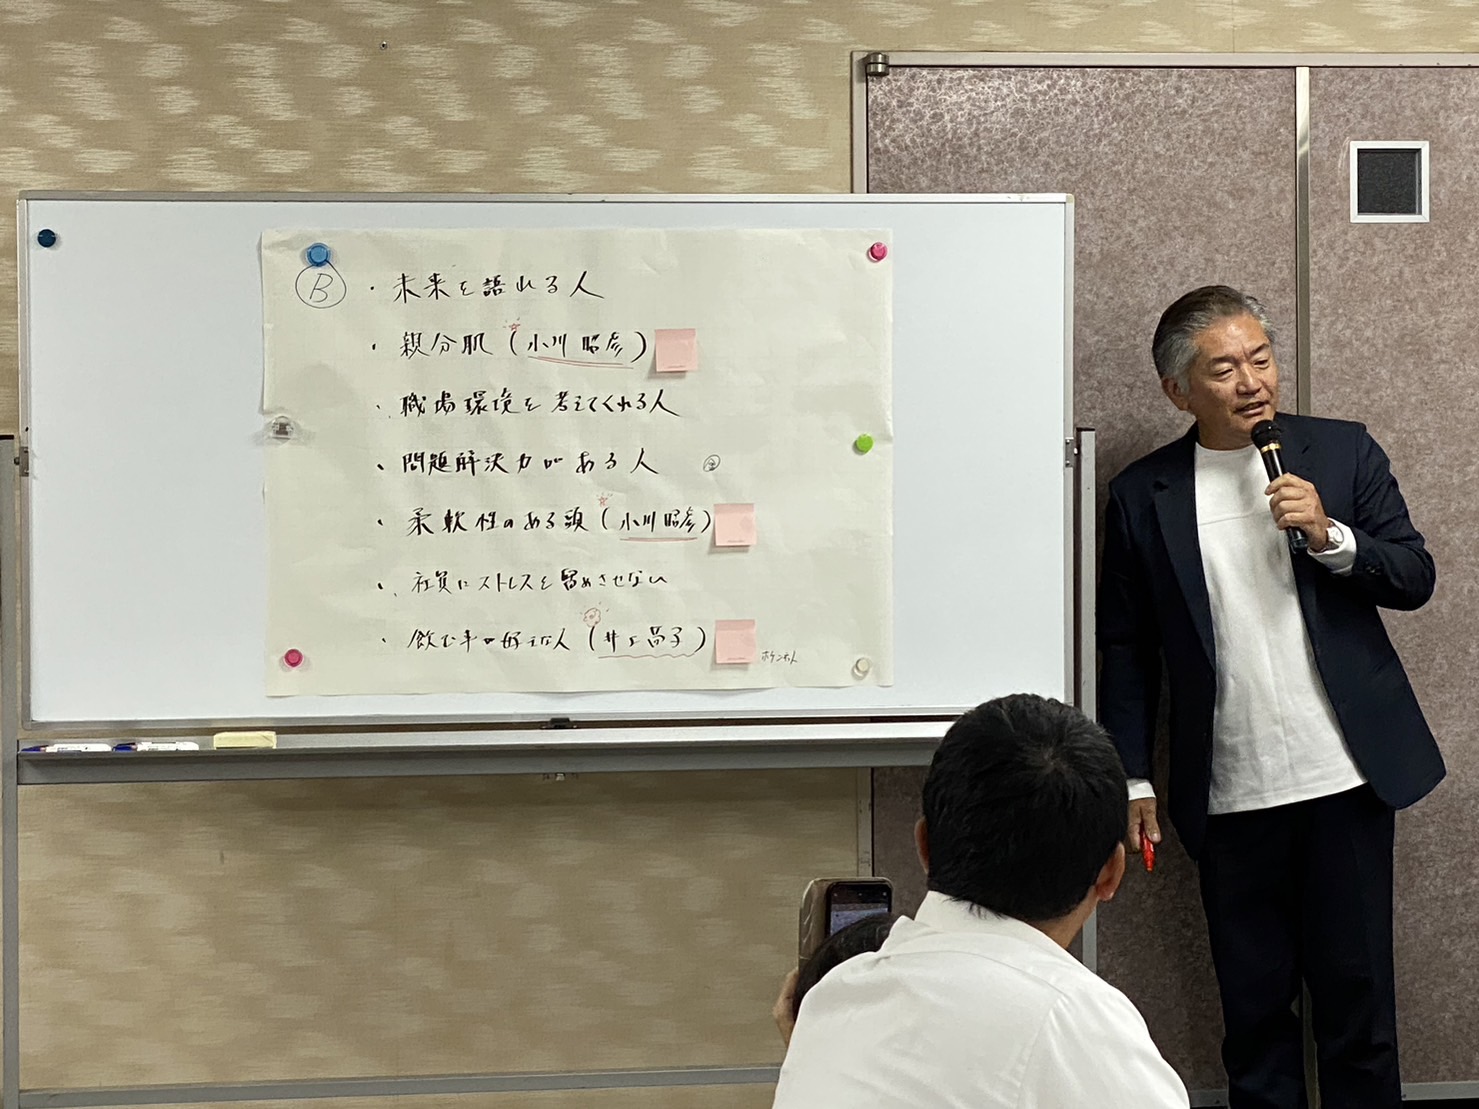 B ・未来を語れる人
・親分肌(小川 昭彦)
・職場環境を考えてくれる人
・問題解決力がある人
・柔軟性のある頭(小川 昭彦)
・社員にストレスを溜めさせない
・飲む事の好きな人(井上 昌子)